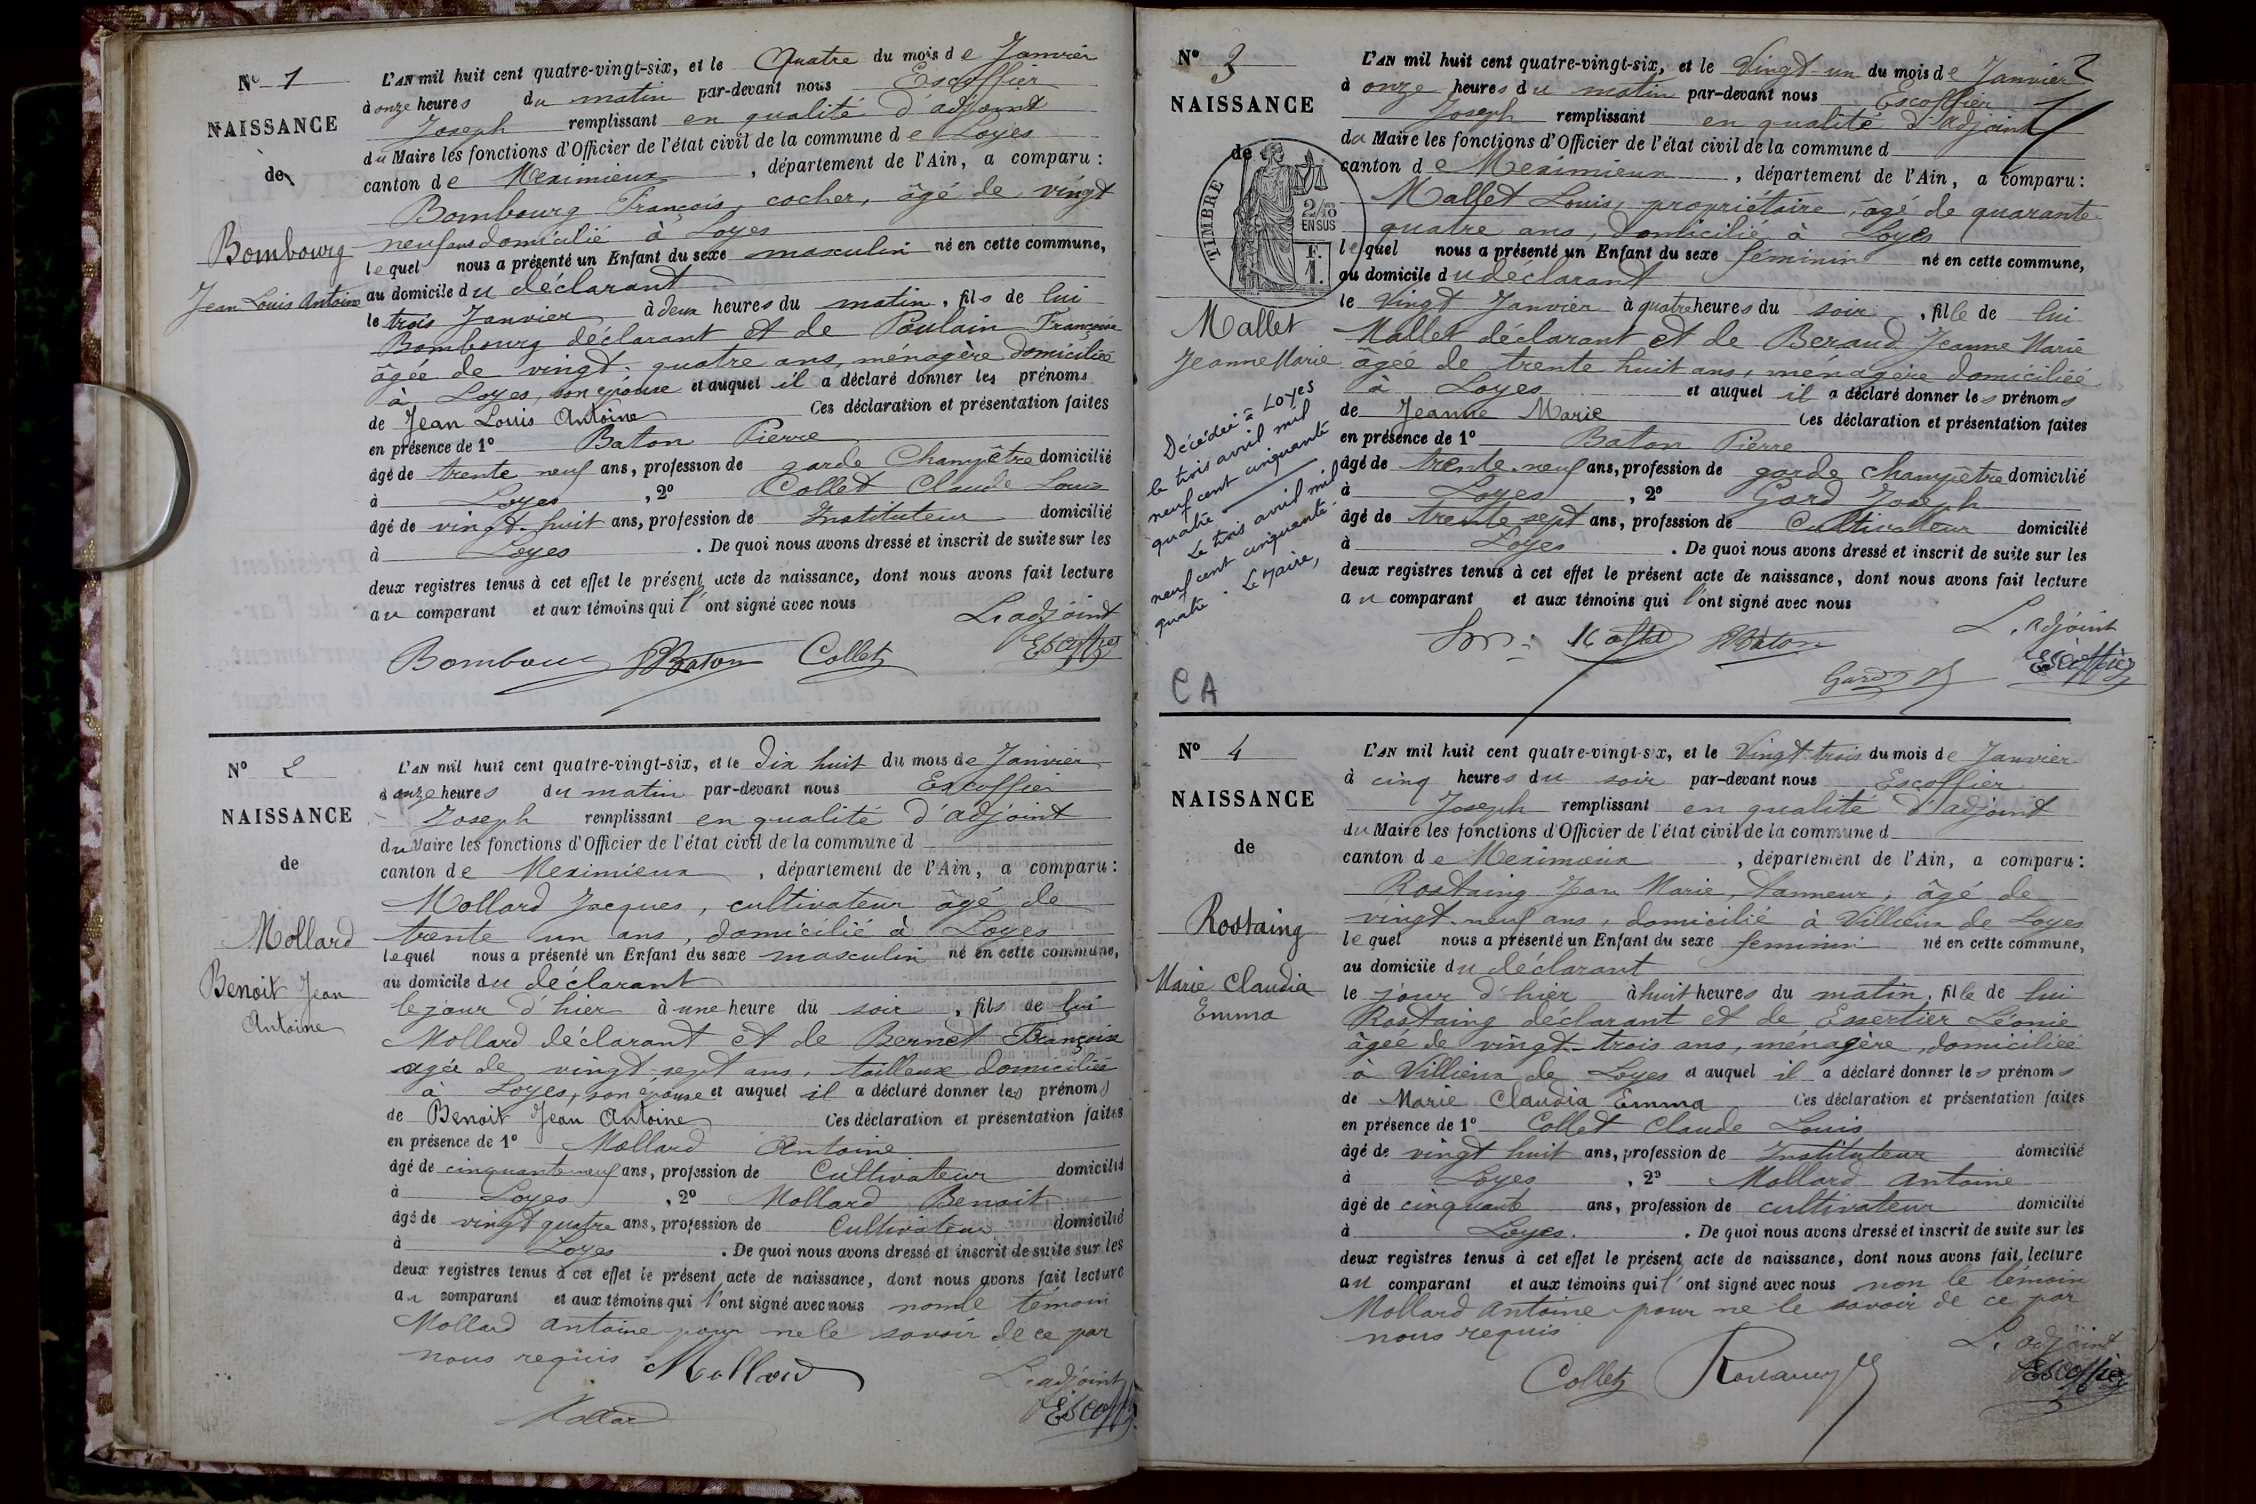 N° 1
NAISSANCE
de
Bombourg
Jean Louis Antoine
L'AN mil huit cent quatre-vingt-six, et le Quatre du mois de Janvier
à onze heures du matin par-devant nous Escoffier
Joseph remplissant en qualité d'adjoint
du Maire les fonctions d'Officier de l'état civil de la commune de Loyes
canton de Meximieux, département de l'Ain, a comparu :
Bombourg François, cocher, âgé de vingt
neuf ans domicilié à Loyes
lequel nous a présenté un Enfant du sexe masculin né en cette commune,
au domicile du déclarant
le trois Janvier à deux heures du matin, fils de lui
Bombourg déclarant et de Poulain Françoise
âgée de vingt-quatre ans, ménagère domiciliée
à Loyes, son épouse et auquel il a déclaré donner les prénoms
de Jean Louis Antoine Ces déclaration et présentation faites
en présence de 1° Baton Pierre
âgé de trente neuf ans, profession de garde Champêtre domicilié
à Loyes, 2° Collet Claude Louis
âgé de vingt-huit ans, profession de Instituteur domicilié
à Loyes. De quoi nous avons dressé et inscrit de suite sur les
deux registres tenus à cet effet le présent acte de naissance, dont nous avons fait lecture
au comparant et aux témoins qui l'ont signé avec nous
L'adjoint
Bombour PBaton Collet Escoffier
N° 2
NAISSANCE
de
Mollard
Benoit Jean
Antoine
L'AN mil huit cent quatre-vingt-six, et le dix huit du mois de Janvier
à onze heures du matin par-devant nous Escoffier
Joseph remplissant en qualité d'adjoint
du Maire les fonctions d'Officier de l'état civil de la commune d
canton de Meximieux, département de l'Ain, a comparu :
Mollard Jacques, cultivateur âgé de
trente un ans, domicilié à Loyes
lequel nous a présenté un Enfant du sexe masculin né en cette commune,
au domicile du déclarant
le jour d'hier à une heure du soir, fils de lui
Mollard déclarant et de Bernet Françoise
agée de vingt sept ans, tailleuse domiciliée
à Loyes, son épouse et auquel il a déclaré donner les prénoms
de Benoit Jean Antoine Ces déclaration et présentation faites
en présence de 1° Mollard Antoine
âgé de cinquante neuf ans, profession de Cultivateur domicilié
à Loyes, 2° Mollard Benoit
âgé de vingt quatre ans, profession de Cultivateur domicilié
à Loyes. De quoi nous avons dressé et inscrit de suite sur les
deux registres tenus à cet effet le présent acte de naissance, dont nous avons fait lecture
au comparant et aux témoins qui l'ont signé avec nous non le témoin
Mollard Antoine pour ne le savoir de ce par
nous requis Mollard
L'adjoint
Mollard Escoffier
N° 3
NAISSANCE
de
TIMBRE
2/10
EN SUS
F.
1.
Mallet
Jeanne Marie
Décédée à Loyes
le trois avril mil
neuf cent cinquante
quatre
Le trois avril mil
neuf cent cinquante
quatre. Le Maire,
CA
2
L'AN mil huit cent quatre-vingt-six, et le Vingt-un du mois de Janvier
à onze heures du matin par-devant nous Escoffier
Joseph remplissant en qualité d'adjoint
du Maire les fonctions d'Officier de l'état civil de la commune d
canton de Meximieux, département de l'Ain, a comparu :
Mallet Louis, propriétaire, âgé de quarante
quatre ans, domicilié à Loyes
lequel nous a présenté un Enfant du sexe féminin né en cette commune,
au domicile du déclarant
le Vingt Janvier à quatre heures du soir, fille de lui
Mallet déclarant et de Beraud Jeanne Marie
âgée de trente huit ans, ménagère domiciliée
à Loyes et auquel il a déclaré donner les prénoms
de Jeanne Marie Ces déclaration et présentation faites
en présence de 1° Baton Pierre
âgé de trente-neuf ans, profession de garde champêtre domicilié
à Loyes, 2° Gard Joseph
âgé de trente sept ans, profession de Cultivateur domicilié
à Loyes. De quoi nous avons dressé et inscrit de suite sur les
deux registres tenus à cet effet le présent acte de naissance, dont nous avons fait lecture
au comparant et aux témoins qui l'ont signé avec nous
L'adjoint
PBaton
Gard Escoffier
N° 4
NAISSANCE
de
Rostaing
Marie Claudia
Emma
L'AN mil huit cent quatre-vingt-six, et le Vingt-trois du mois de Janvier
à cinq heures du soir par-devant nous Escoffier
Joseph remplissant en qualité d'adjoint
du Maire les fonctions d'Officier de l'état civil de la commune d
canton de Meximieux, département de l'Ain, a comparu :
Rostaing Jean Marie, tanneur, âgé de
vingt-neuf ans, domicilié à Villieux de Loyes
lequel nous a présenté un Enfant du sexe feminin né en cette commune,
au domicile du déclarant
le jour d'hier à huit heures du matin, fille de lui
Rostaing déclarant et de Essertier Léonie
âgée de vingt-trois ans, ménagère, domiciliée
a Villieux de Loyes et auquel il a déclaré donner les prénoms
de Marie Claudia Emma Ces déclaration et présentation faites
en présence de 1° Collet Claude Louis
âgé de vingt huit ans, profession de Instituteur domicilié
à Loyes, 2° Mollard Antoine
âgé de cinquante ans, profession de cultivateur domicilié
à Loyes. De quoi nous avons dressé et inscrit de suite sur les
deux registres tenus à cet effet le présent acte de naissance, dont nous avons fait lecture
au comparant et aux témoins qui l'ont signé avec nous non le témoin
Mollard Antoine pour ne le savoir de ce par
nous requis
L'adjoint
Collet Rostaing Escoffier